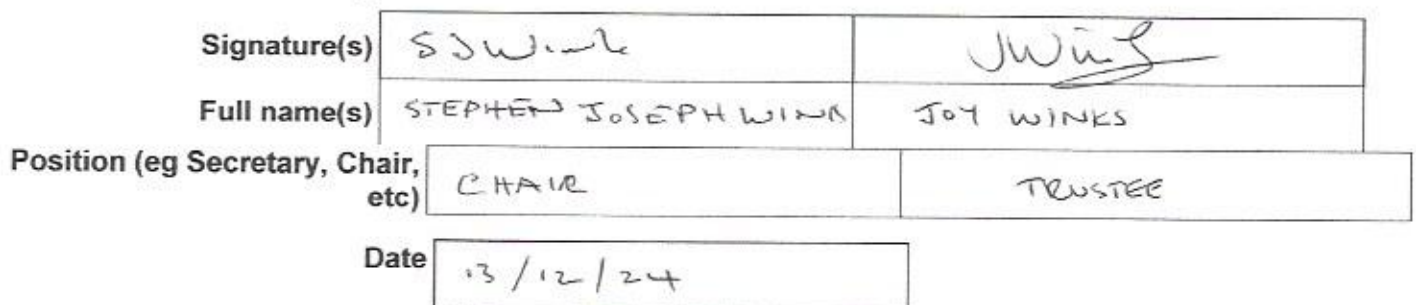 Signature(s) SJWink JWinks
Full name(s) STEPHEN JOSEPH WINK JOY WINKS
Position (eg Secretary, Chair, etc) CHAIR TRUSTEE
Date 13/12/24